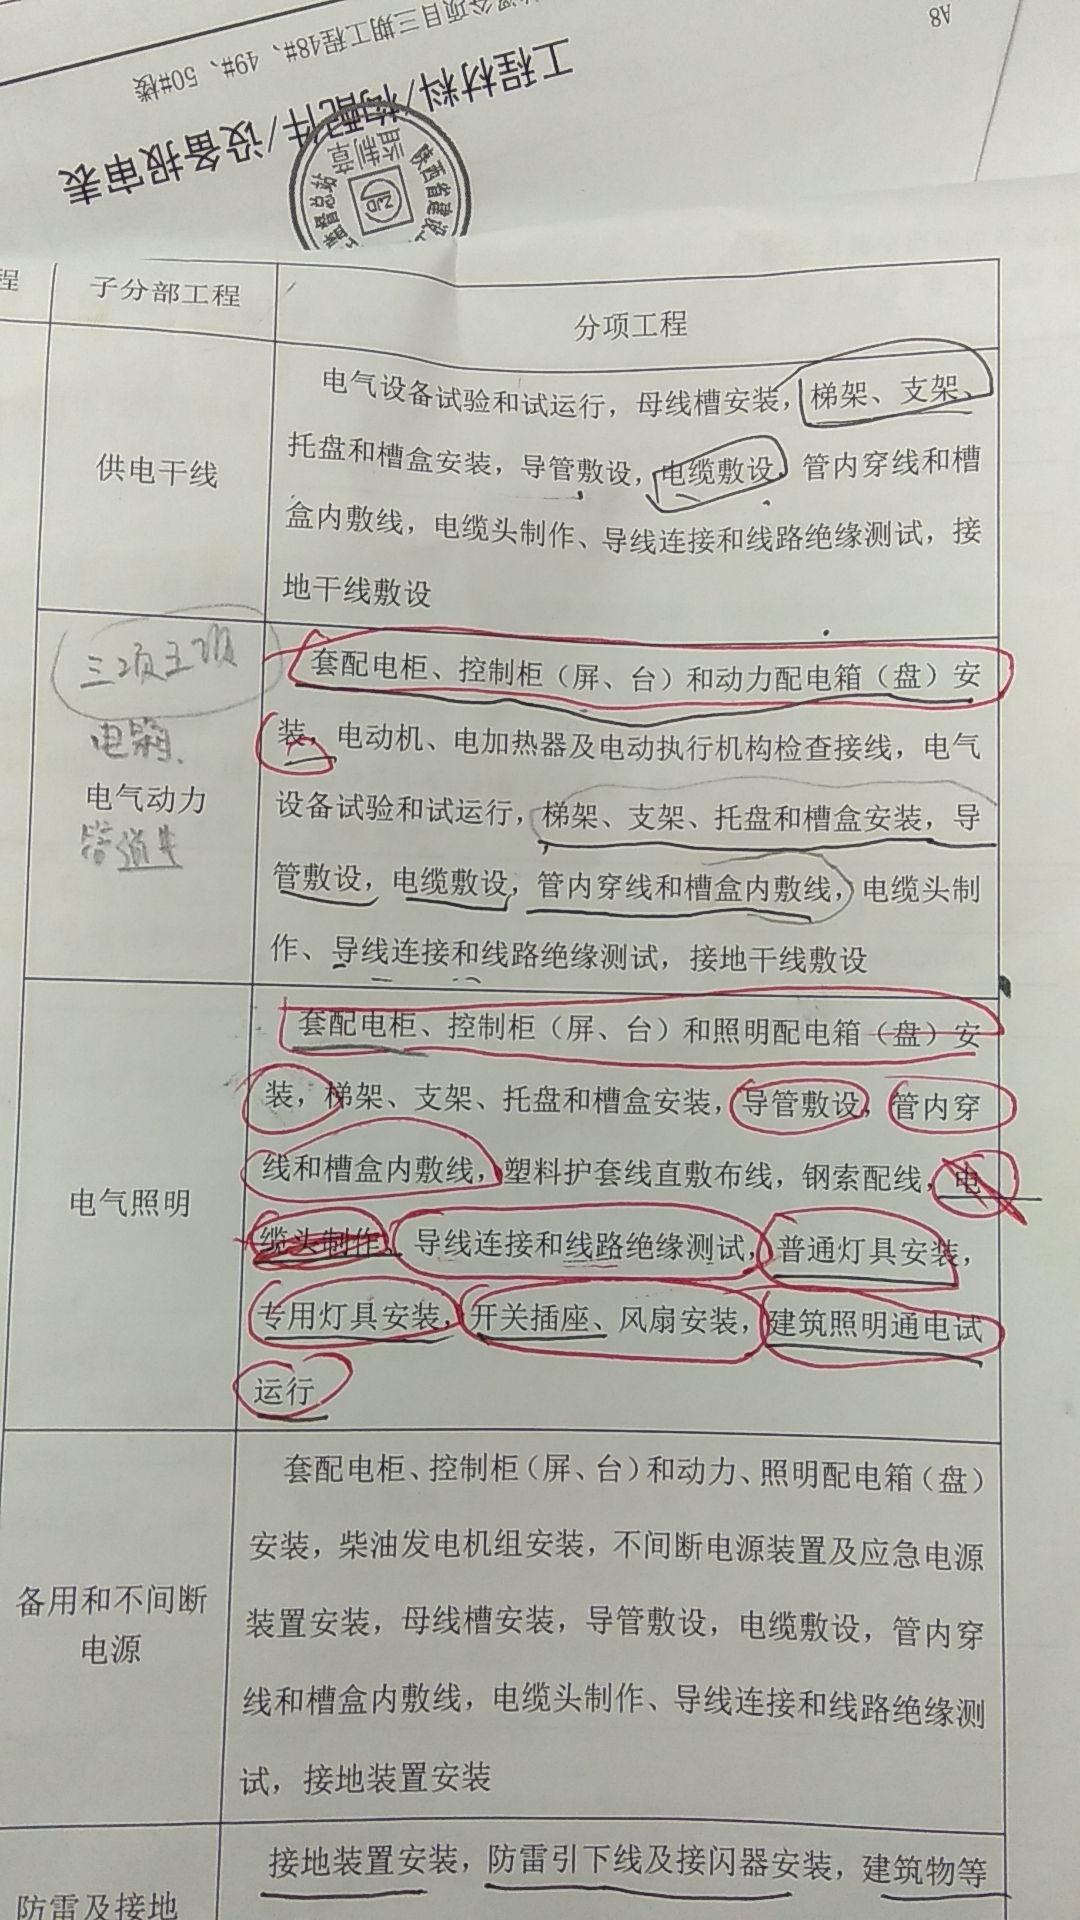 A8
项目三期工程48#、49#、50#楼
工程材料/构配件/设备报审表
陕西省建设
监督总站
监制章
程
子分部工程
分项工程
供电干线
电气设备试验和试运行，母线槽安装，梯架、支架、
托盘和槽盒安装，导管敷设，电缆敷设，管内穿线和槽
盒内敷线，电缆头制作、导线连接和线路绝缘测试，接
地干线敷设
三项
电气动力
套配电柜、控制柜（屏、台）和动力配电箱（盘）安
装，电动机、电加热器及电动执行机构检查接线，电气
设备试验和试运行，梯架、支架、托盘和槽盒安装，导
管敷设，电缆敷设，管内穿线和槽盒内敷线，电缆头制
作、导线连接和线路绝缘测试，接地干线敷设
电气照明
套配电柜、控制柜（屏、台）和照明配电箱（盘）安
装，梯架、支架、托盘和槽盒安装，导管敷设，管内穿
线和槽盒内敷线，塑料护套线直敷布线，钢索配线，电
缆头制作、导线连接和线路绝缘测试，普通灯具安装，
专用灯具安装，开关插座、风扇安装，建筑照明通电试
运行
备用和不间断
电源
套配电柜、控制柜（屏、台）和动力、照明配电箱（盘）
安装，柴油发电机组安装，不间断电源装置及应急电源
装置安装，母线槽安装，导管敷设，电缆敷设，管内穿
线和槽盒内敷线，电缆头制作、导线连接和线路绝缘测
试，接地装置安装
防雷及接地
接地装置安装，防雷引下线及接闪器安装，建筑物等